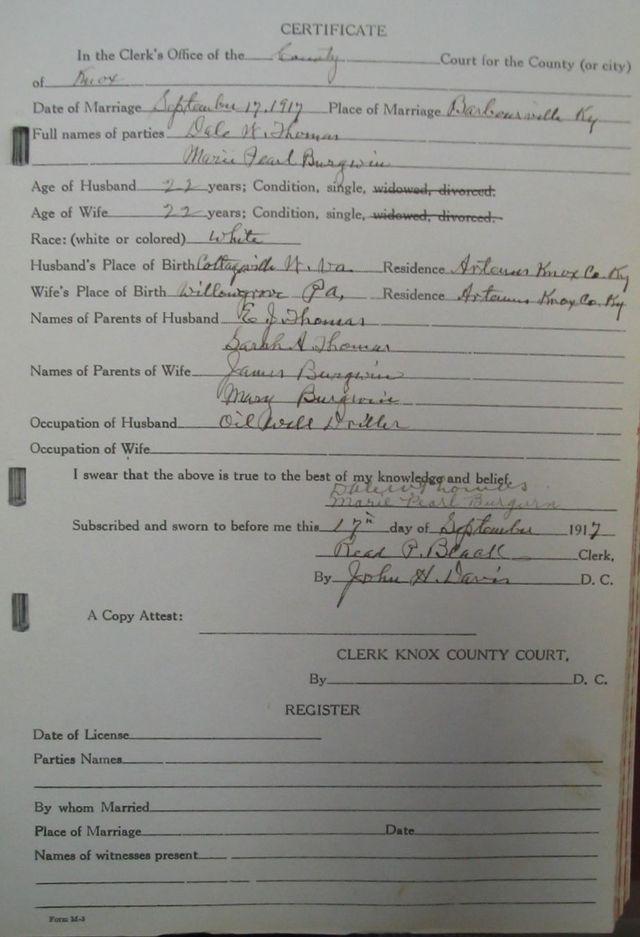 CERTIFICATE
In the Clerk's Office of the County Court for the County (or city)
of Knox
Date of Marriage September 17, 1917 Place of Marriage Barbourville Ky
Full names of parties Dale W. Thomas
Marie Pearl Burgwin
Age of Husband 22 years; Condition, single, widowed, divorced.
Age of Wife 22 years; Condition, single, widowed, divorced.
Race: (white or colored) White
Husband's Place of Birth Cottageville W. Va. Residence Artemus Knox Co. Ky
Wife's Place of Birth Willowgrove Pa, Residence Artemus Knox Co. Ky
Names of Parents of Husband E J Thomas
Sarah A Thomas
Names of Parents of Wife James Burgwin
Mary Burgwin
Occupation of Husband Oil Well Driller
Occupation of Wife
I swear that the above is true to the best of my knowledge and belief.
Dale W Thomas
Marie Pearl Burgwin
Subscribed and sworn to before me this 17th day of September 1917
Read P. Black Clerk,
By John H. Davis D. C.
A Copy Attest:
CLERK KNOX COUNTY COURT,
By D. C.
REGISTER
Date of License
Parties Names
By whom Married
Place of Marriage Date
Names of witnesses present
Form M-3